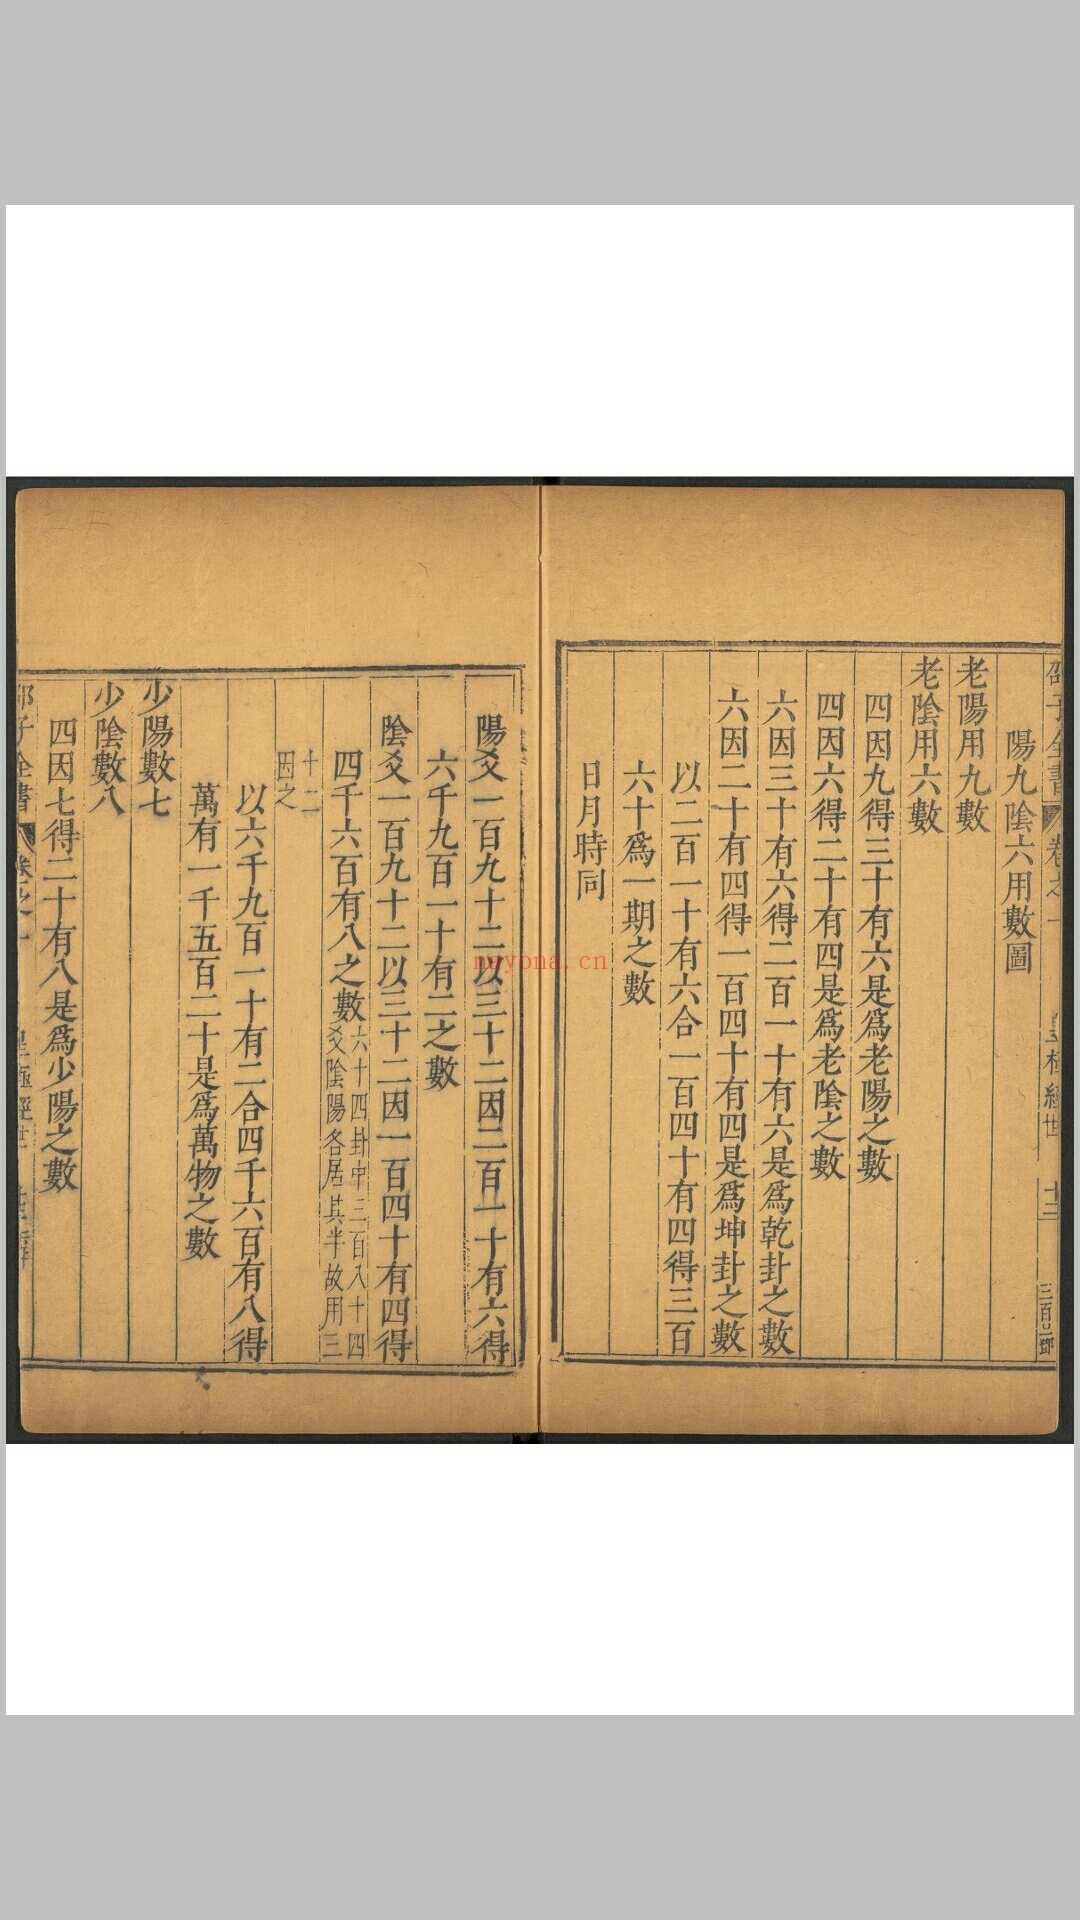 邵子全書
卷之一
皇極經世
十三
三百二
陽九陰六用數圖
老陽用九數
老陰用六數
四因九得三十有六是爲老陽之數
四因六得二十有四是爲老陰之數
六因三十有六得二百一十有六是爲乾卦之數
六因二十有四得一百四十有四是爲坤卦之數
以二百一十有六合一百四十有四得三百
六十爲一期之數
日月時同
陽爻一百九十二以三十二因二百一十有六得
六千九百一十有二之數
陰爻一百九十二以三十二因一百四十有四得
四千六百有八之數
六十四卦中三百八十四
爻陰陽各居其半故用三
十二
因之
以六千九百一十有二合四千六百有八得
萬有一千五百二十是爲萬物之數
少陽數七
少陰數八
四因七得二十有八是爲少陽之數
邵子全書
卷之一
皇極經世
nayona.cn